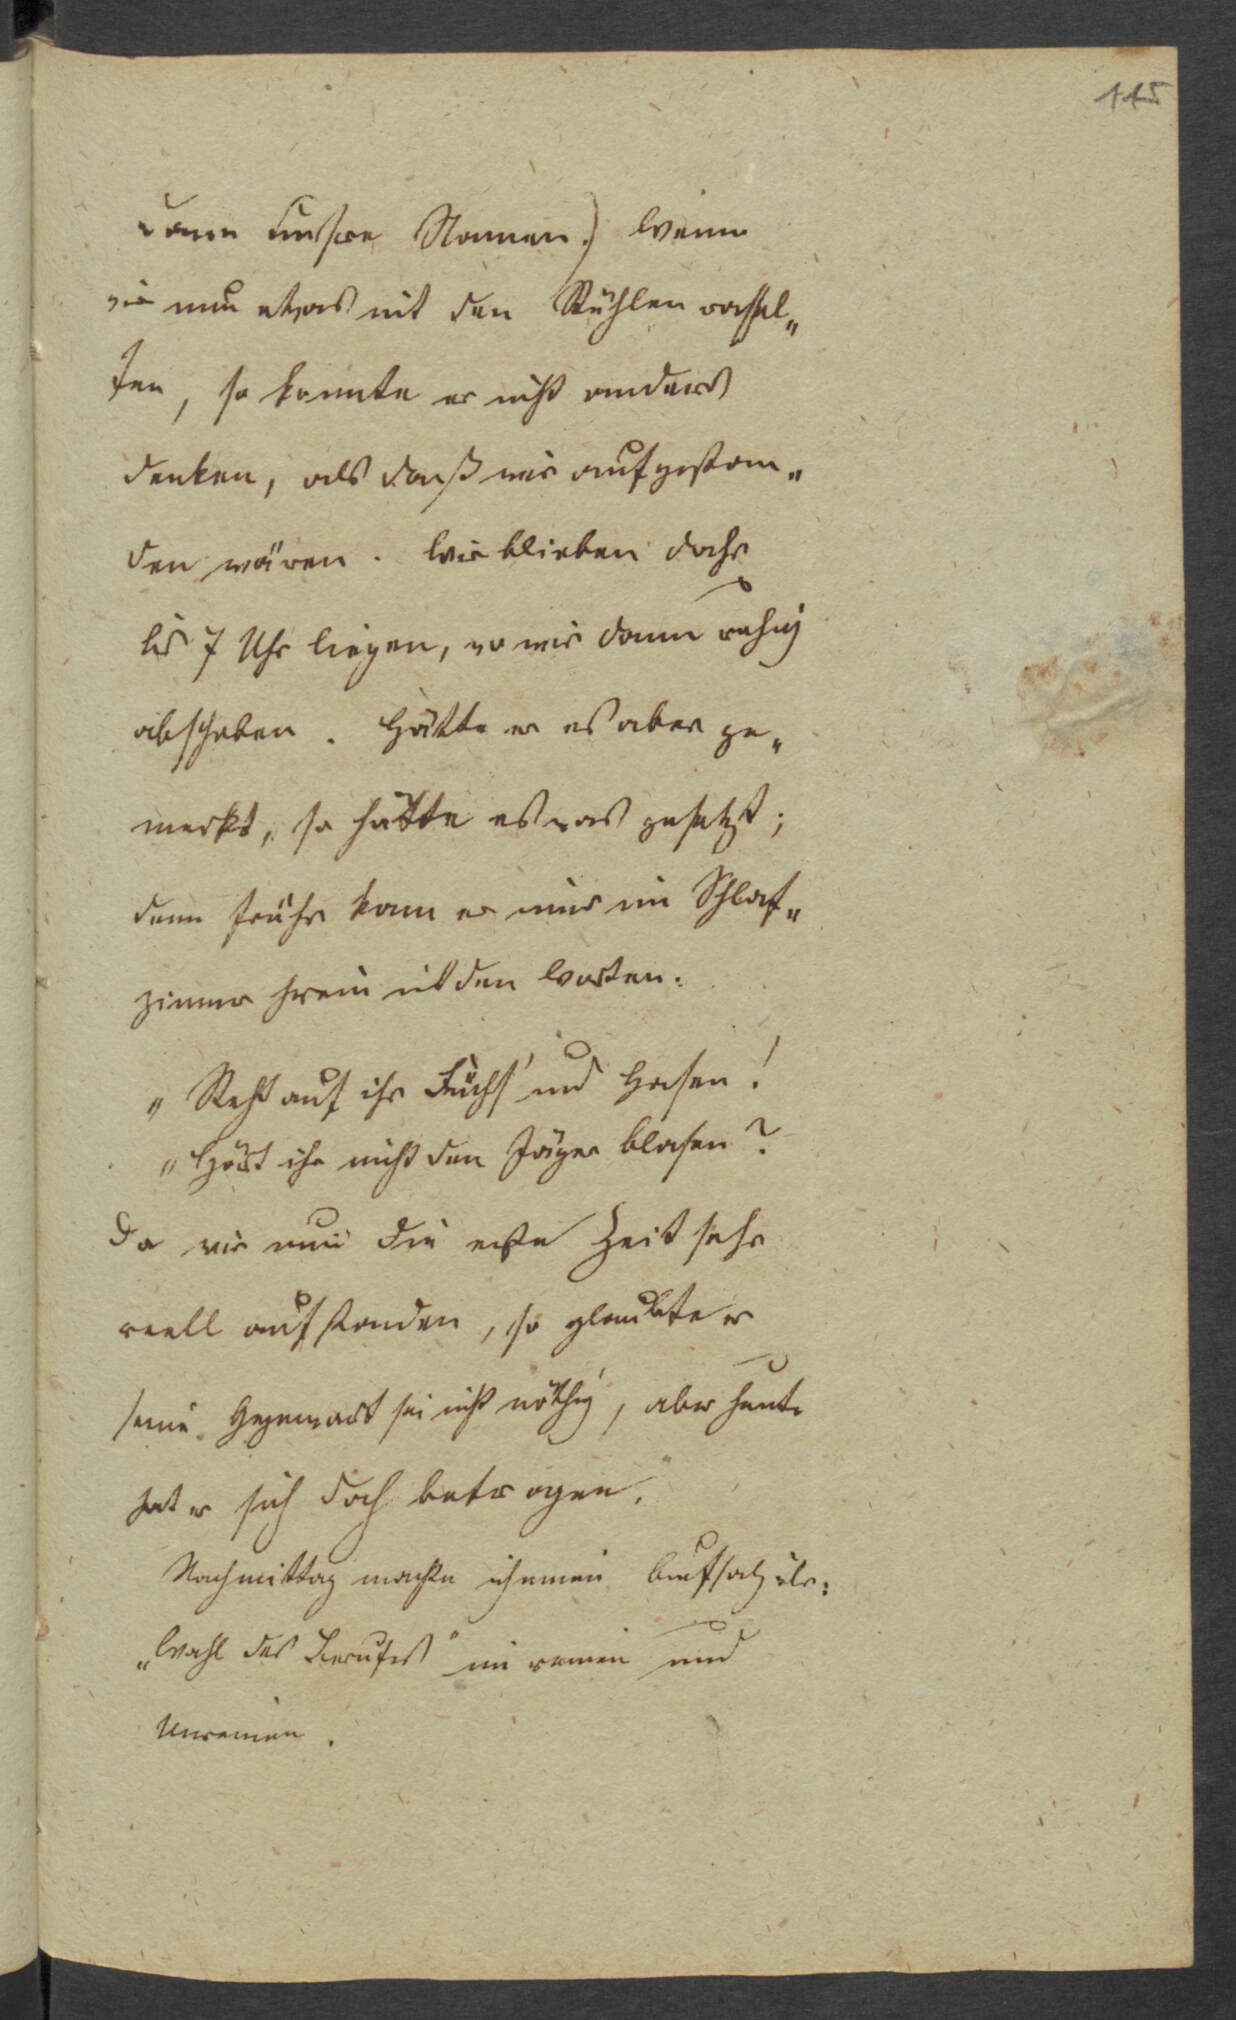 115
dann unsere Namen.) Wenn
wir nun etwas mit den Stühlen rassel„
ten, so konnte er nicht anders
denken, als daß wir aufgestan„
den wären. Wir blieben doch
bis 7 Uhr liegen, wo wir dann ruhig
abschoben. Hätte er es aber ge„
merkt, so hätte es was gesetzt;
denn früher kam er immer im Schlaf„
zimmer herein mit den Worten:
„Steht auf ihr Füchs' und Hasen!
„Hört ihr nicht den Jäger blasen?
Da wir nun die erste Zeit sehr
reell aufstanden, so glaubte er
seine Gegenwart sei nicht nöthig, aber heute
hat er sich doch betrogen.
Nachmittag machte ich meinen Aufsatz über:
„Wahl des Berufes" im reinen und
Unreinen.